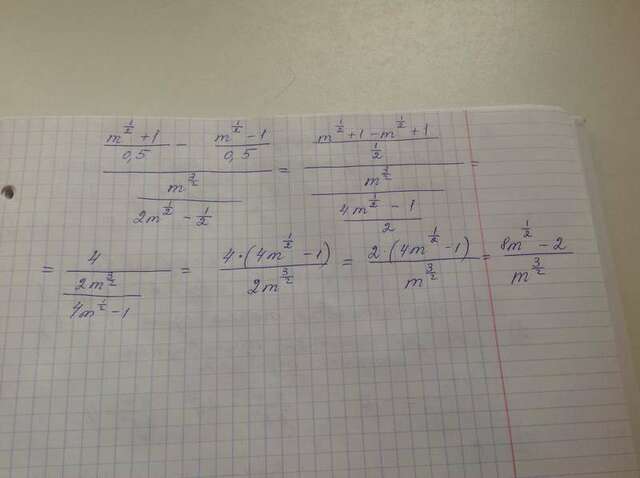 ((m^(1/2) + 1)/(0,5) − (m^(1/2) − 1)/(0,5)) / (m^(3/2)/(2m^(1/2) − 1/2)) = ((m^(1/2) + 1 − m^(1/2) + 1)/(1/2)) / (m^(3/2)/((4m^(1/2) − 1)/2)) =
= 4/((2m^(3/2))/(4m^(1/2) − 1)) = (4·(4m^(1/2) − 1))/(2m^(3/2)) = (2·(4m^(1/2) − 1))/(m^(3/2)) = (8m^(1/2) − 2)/(m^(3/2))